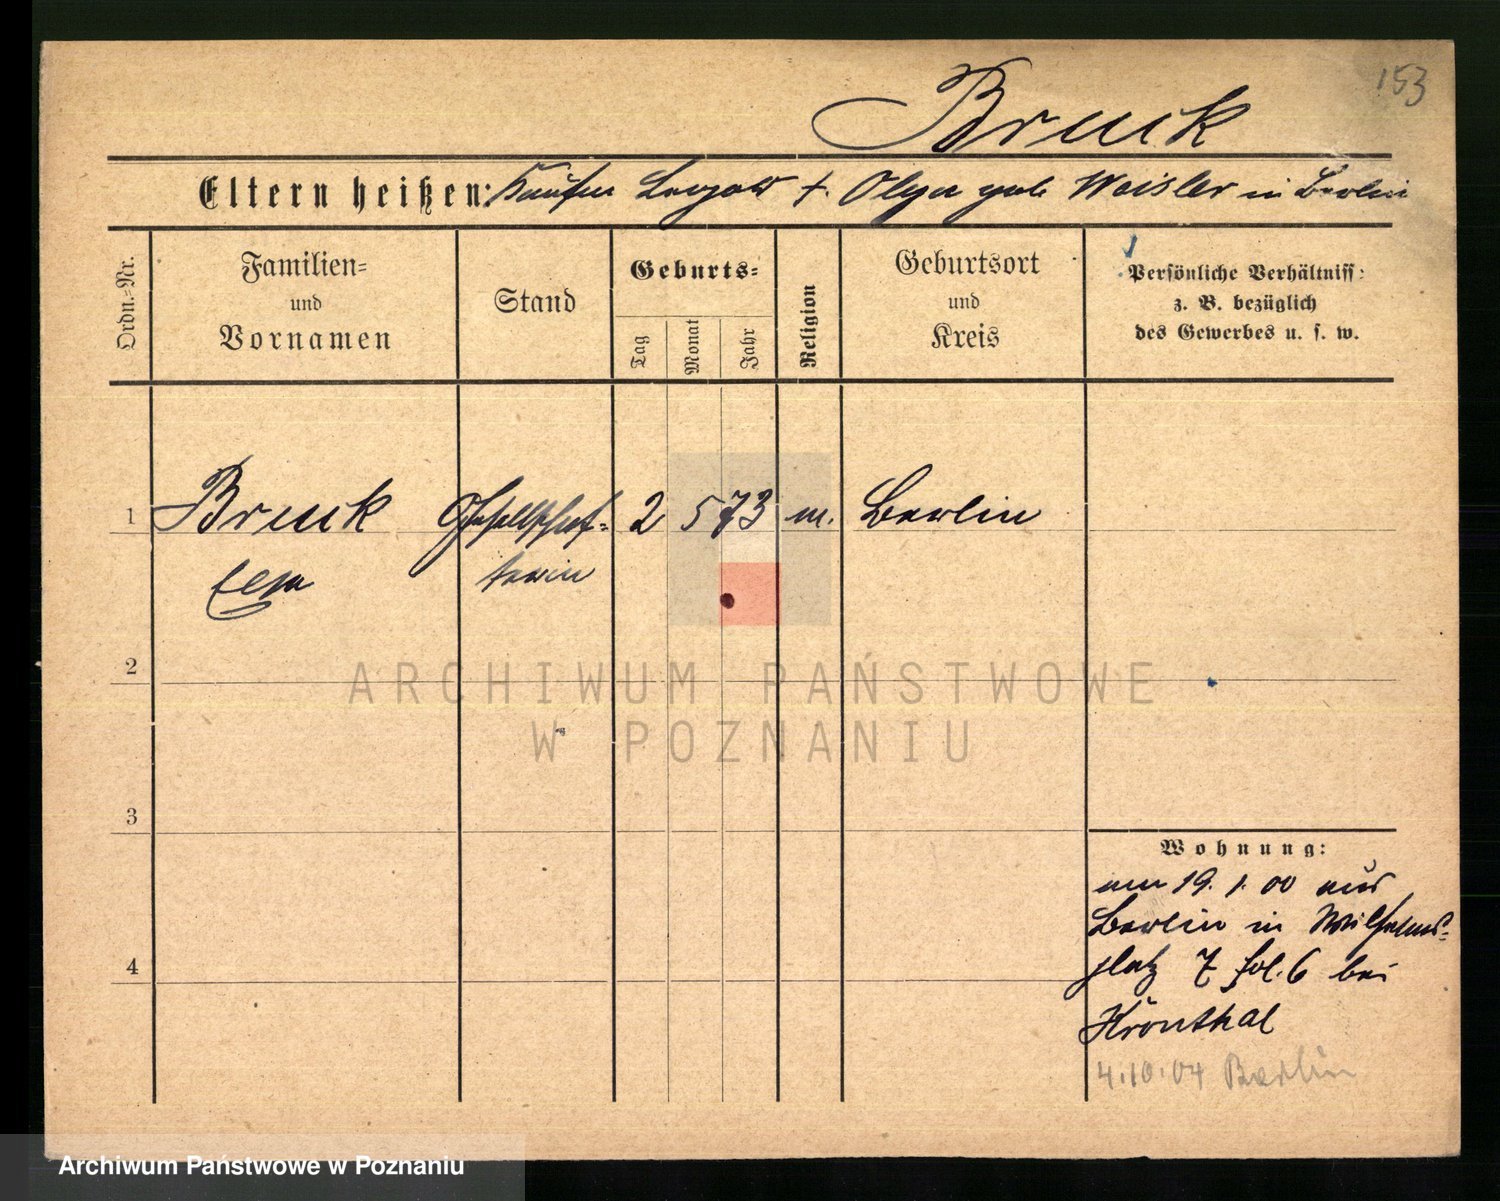 153
Bruck
Eltern heißen: Kaufm Leopold †. Olga geb. Weisler in Berlin
Ordn.-Nr.
Familien-
und
Vornamen
Stand
Geburts-
Tag
Monat
Jahr
Religion
Geburtsort
und
Kreis
Persönliche Verhältniss:
z. B. bezüglich
des Gewerbes u. s. w.
1 Bruck Gesellschaf- 2 5 73 m. Berlin
Elsa terin
2
ARCHIWUM PAŃSTWOWE
W POZNANIU
3
Wohnung:
am 19. 1. 00 aus
Berlin in Wilhelms-
platz 7 fol. 6 bei
4
Kronthal
4.10.04 Berlin
Archiwum Państwowe w Poznaniu